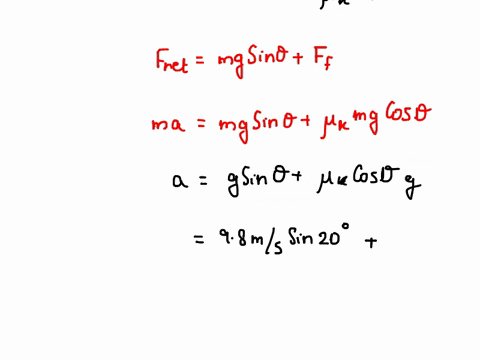 μk
Fnet = mg Sinθ + Ff
ma = mg Sinθ + μk mg Cosθ
a = g Sinθ + μk Cosθ g
= 9.8 m/s Sin 20° +